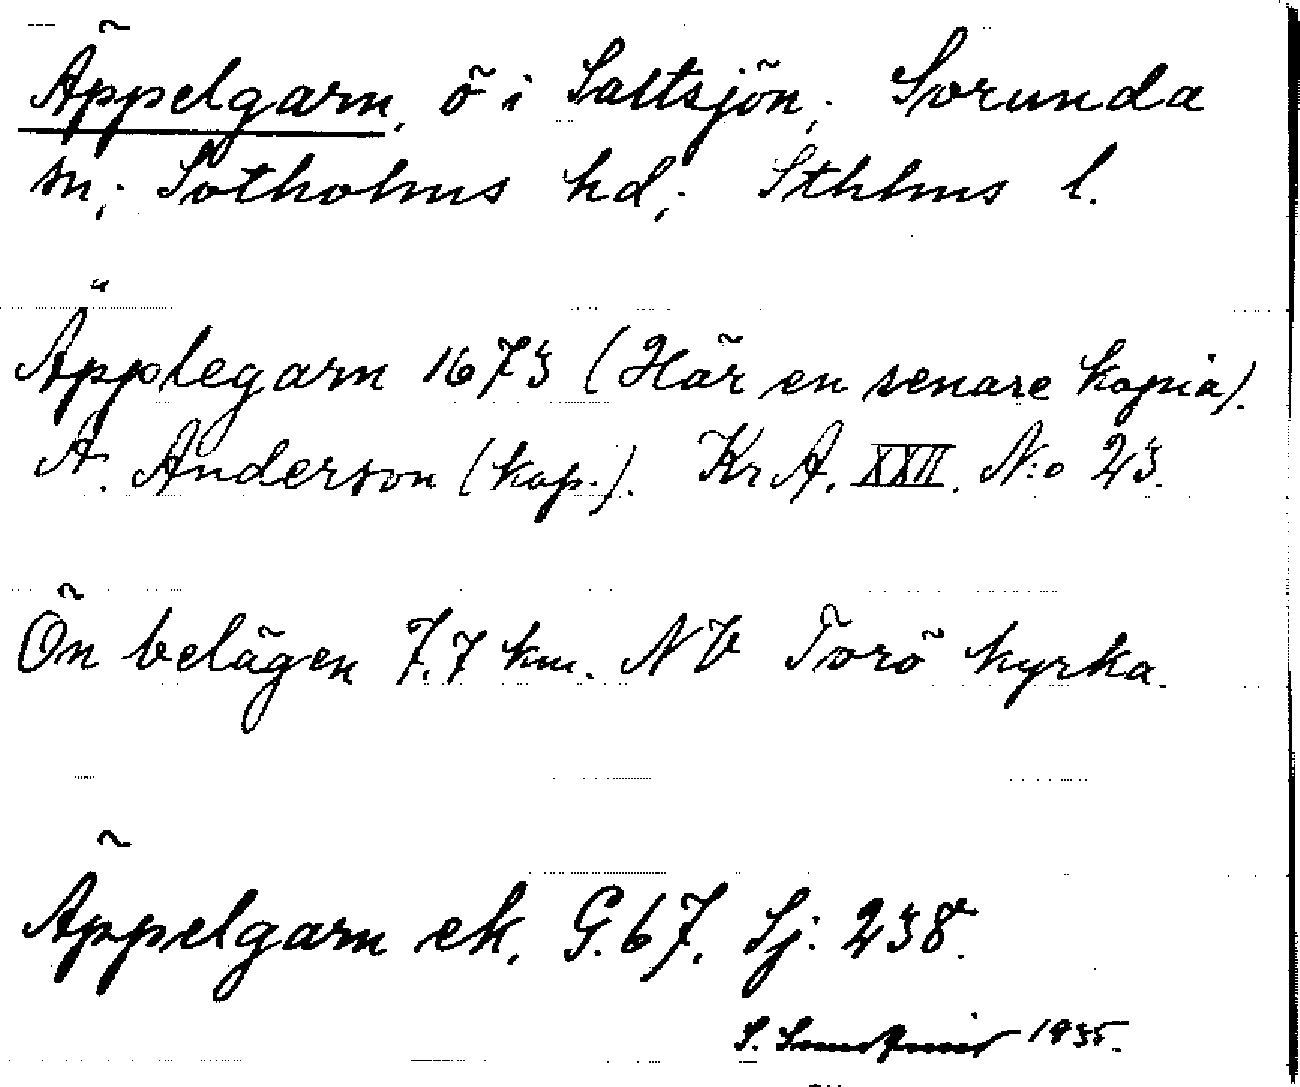 Äppelgarn, ö i Saltsjön; Sorunda
sn; Sotholms hd; Sthlms l.
Äpplegarn 1673 (Här en senare kopia).
A. Anderson (kop.). Kr A. XXII. N:o 23.
Ön belägen 7.7 km. NV Torö kyrka.
Äppelgarn ek. G. 67. Sj: 238.
S. 1935.